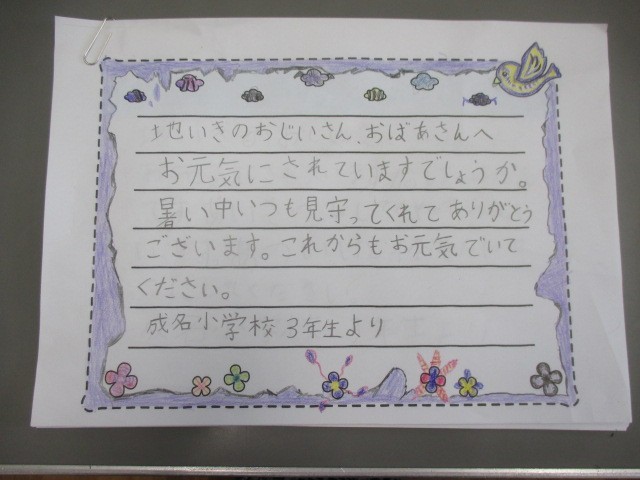 地いきのおじいさん、おばあさんへ
お元気にされていますでしょうか。
暑い中いつも見守ってくれてありがとう
ございます。これからもお元気でいて
ください。
成名小学校 3年生より